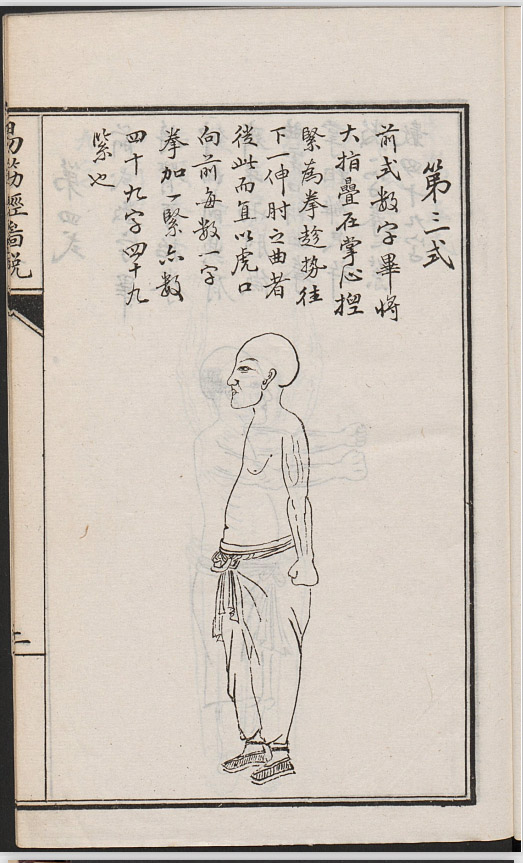 第三式
前式数字畢將
大指疊在掌心握
緊為拳趁势往
下一伸肘之曲者
從此而直以虎口
向前每数一字
拳加一緊亦数
四十九字四十九
緊也
易筋經圖説